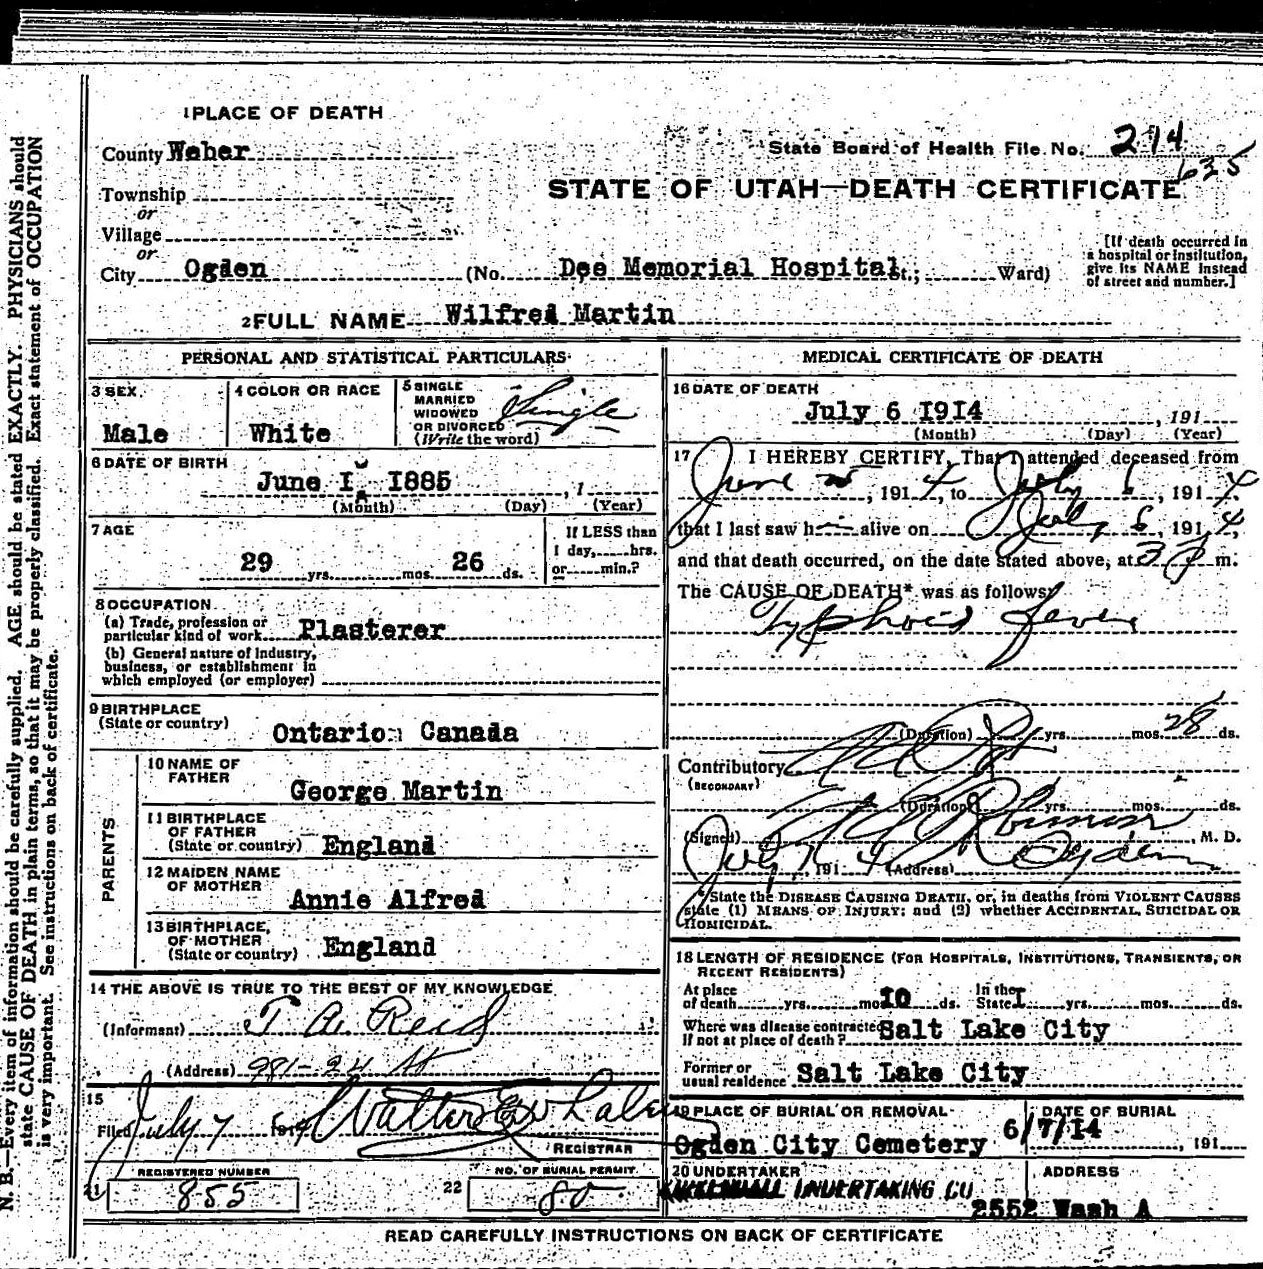 1 PLACE OF DEATH
County Weber
State Board of Health File No. 214
635
Township
or
STATE OF UTAH—DEATH CERTIFICATE
Village
or
City Ogden (No. Dee Memorial Hospital St.; Ward)
[If death occurred in
a hospital or institution,
give its NAME instead
of street and number.]
2 FULL NAME Wilfred Martin
PERSONAL AND STATISTICAL PARTICULARS
3 SEX
Male
4 COLOR OR RACE
White
5 SINGLE
MARRIED
WIDOWED
OR DIVORCED
(Write the word)
Single
6 DATE OF BIRTH
June I, I885, 1
(Month) (Day) (Year)
7 AGE
29 yrs. mos. 26 ds.
If LESS than
1 day, hrs.
or min.?
8 OCCUPATION
(a) Trade, profession or
particular kind of work Plasterer
(b) General nature of industry,
business, or establishment in
which employed (or employer)
9 BIRTHPLACE
(State or country)
Ontario Canada
PARENTS
10 NAME OF
FATHER
George Martin
11 BIRTHPLACE
OF FATHER
(State or country) England
12 MAIDEN NAME
OF MOTHER
Annie Alfred
13 BIRTHPLACE,
OF MOTHER
(State or country) England
14 THE ABOVE IS TRUE TO THE BEST OF MY KNOWLEDGE
(Informant) T A Reid
(Address) 981-24 St
15
Filed July 7 1914 Walter E Whalen
REGISTRAR
REGISTERED NUMBER
21 855
NO. OF BURIAL PERMIT
22 80
MEDICAL CERTIFICATE OF DEATH
16 DATE OF DEATH
July 6 I9I4, 191
(Month) (Day) (Year)
17 I HEREBY CERTIFY, That I attended deceased from
June 25, 1914, to July 6, 1914,
that I last saw him alive on July 6, 1914,
and that death occurred, on the date stated above, at 3 P m.
The CAUSE OF DEATH* was as follows:
Typhoid fever
(Duration) yrs. mos. 28 ds.
Contributory
(SECONDARY)
(Duration) yrs. mos. ds.
(Signed) M. D.
July 7, 1914 (Address) Ogden
*State the DISEASE CAUSING DEATH, or, in deaths from VIOLENT CAUSES
state (1) MEANS OF INJURY; and (2) whether ACCIDENTAL, SUICIDAL OR
HOMICIDAL.
18 LENGTH OF RESIDENCE (FOR HOSPITALS, INSTITUTIONS, TRANSIENTS, OR
RECENT RESIDENTS)
At place
of death yrs. mos. I0 ds.
In the
State I yrs. mos. ds.
Where was disease contracted
If not at place of death? Salt Lake City
Former or
usual residence Salt Lake City
19 PLACE OF BURIAL OR REMOVAL
Ogden City Cemetery
DATE OF BURIAL
6/7/14, 191
20 UNDERTAKER
UNDERTAKING CO
ADDRESS
2552 Wash A
READ CAREFULLY INSTRUCTIONS ON BACK OF CERTIFICATE
N. B.—Every item of information should be carefully supplied. AGE should be stated EXACTLY. PHYSICIANS should
state CAUSE OF DEATH in plain terms, so that it may be properly classified. Exact statement of OCCUPATION
is very important. See instructions on back of certificate.